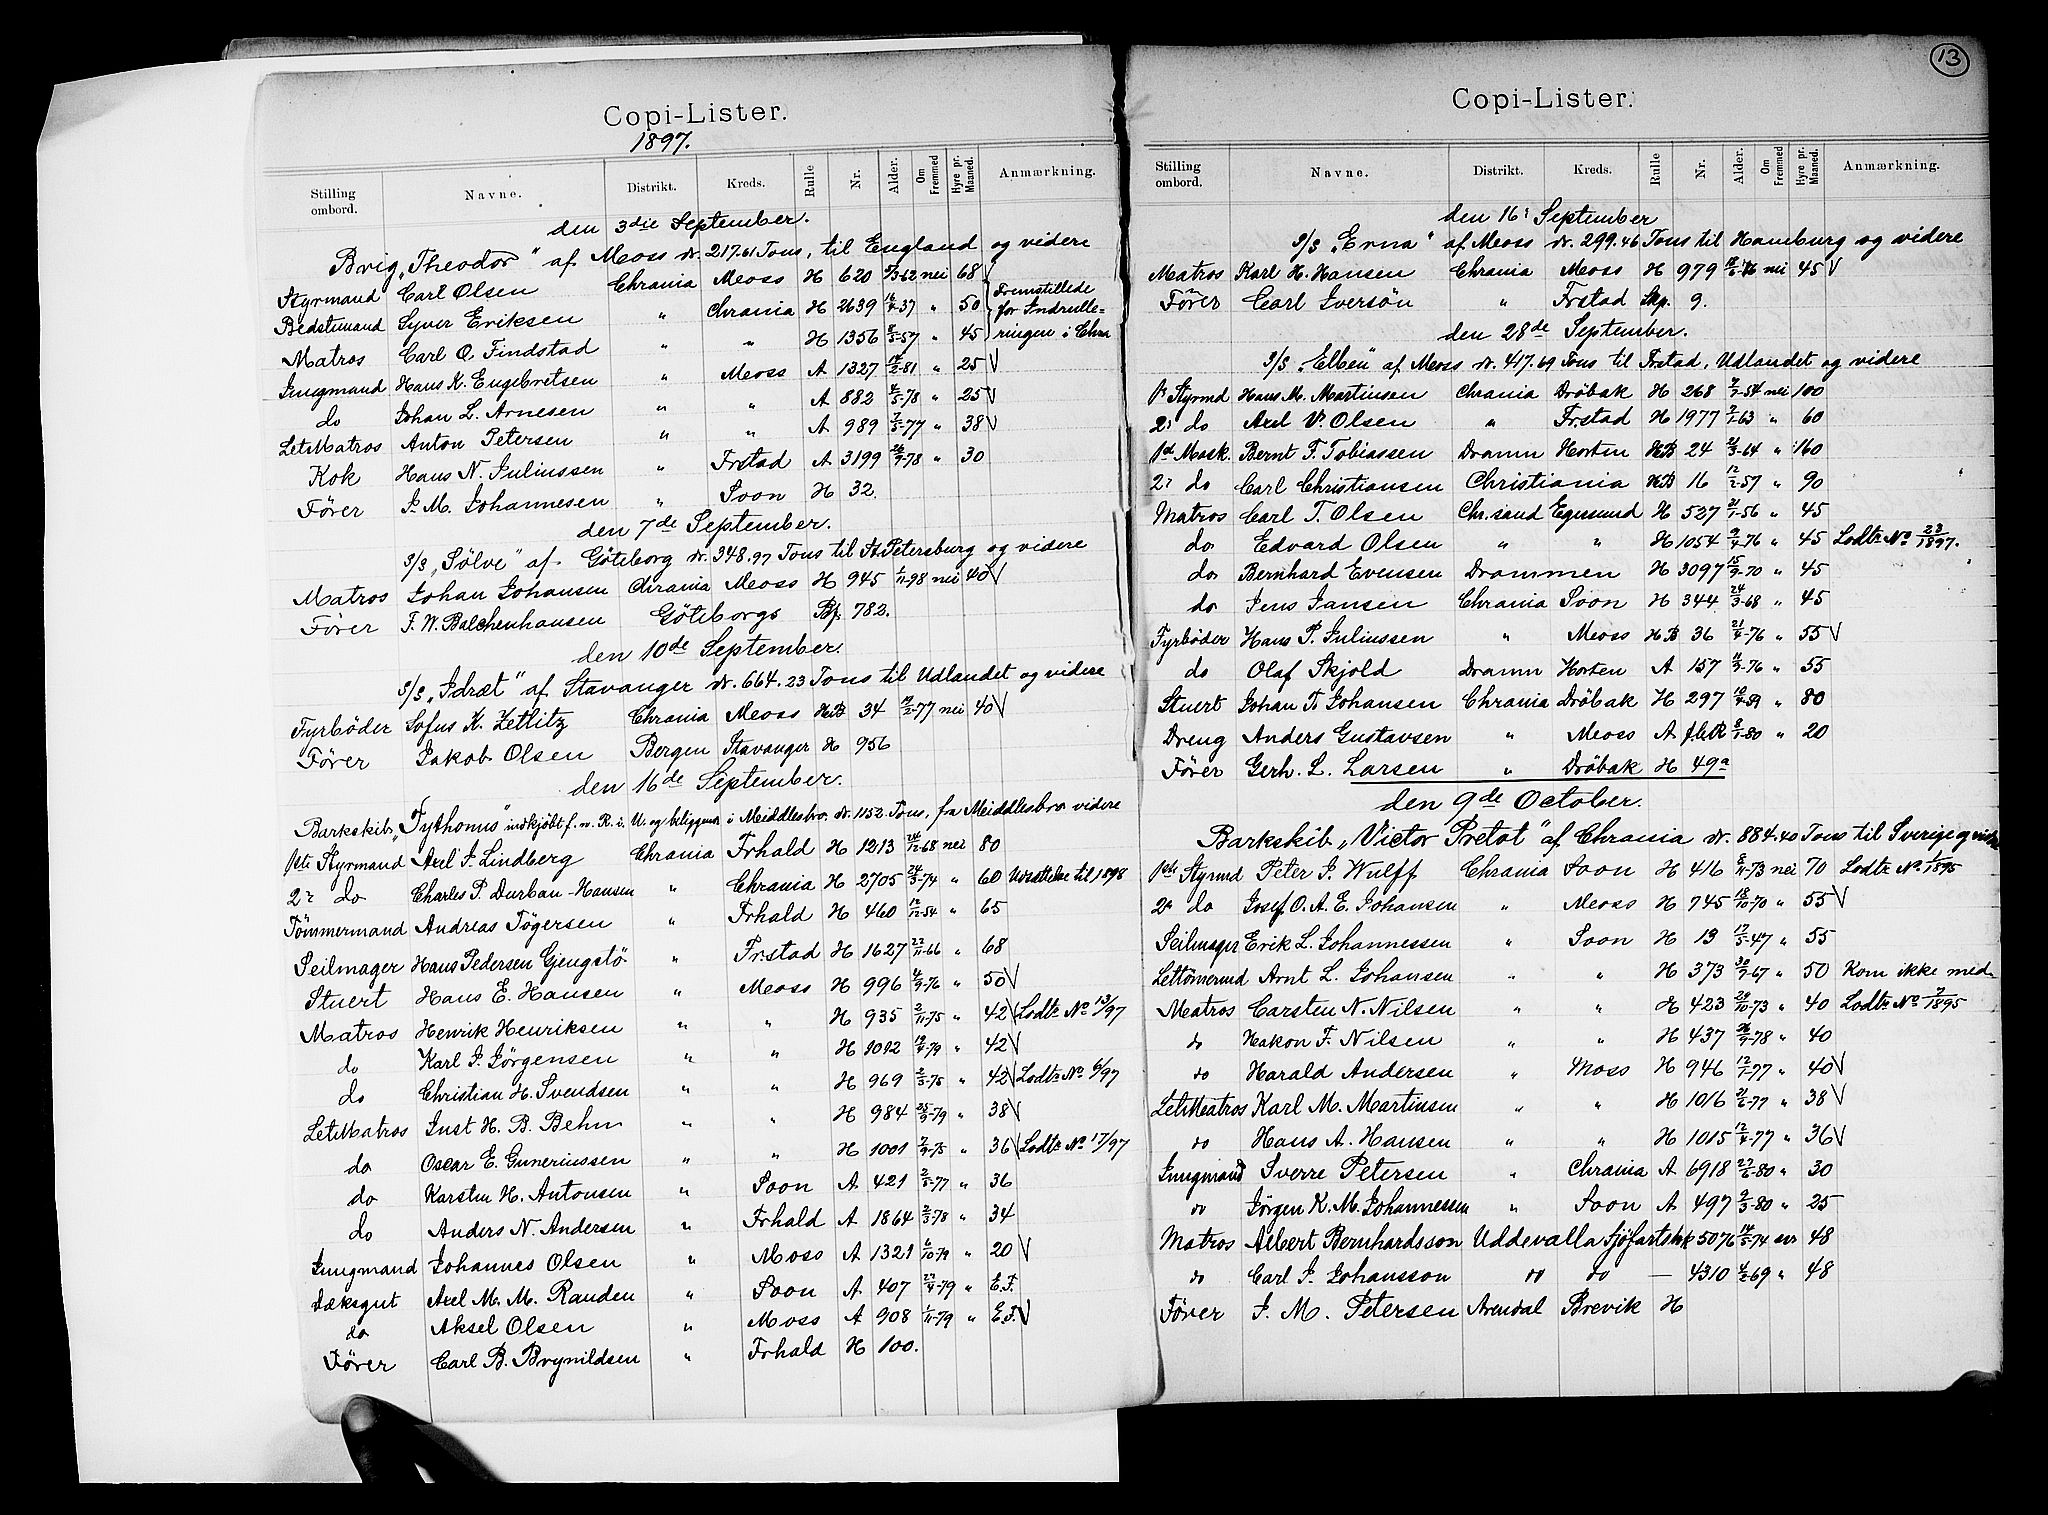 Copi-Lister.
1897.
Stilling ombord. Navne. Distrikt. Kreds. Rulle Nr. Alder. Om Fremmed Hyre pr. Maaned. Anmærkning.
den 3die September.
Brig „Theodor" af Moss dr. 217.61 Tons, til England og videre
Styrmand Carl Olsen Chrania Moss H 620 3-62 nei 68
Bedstemand Syver Eriksen " Chrania H 2639 16/4-37 " 50 Fremstillede for Indrulle-
Matros Carl O. Findstad " " H 1356 8/5-57 " 45 ringen i Chra
Jungmand Hans K. Engebretsen " Moss A 1327 14/2-81 " 25 V
do Johan L. Arnesen " " A 882 4/5-78 " 25 V
LetMatros Anton Petersen " " A 989 7/5-77 " 38 V
Kok Hans N. Juliussen " Frstad A 3199 26/9-78 " 30
Fører J. M. Johannesen " Soon H 32.
den 7de September.
S/S „Sölve" af Göteborg dr. 348.97 Tons til St. Petersburg og videre
Matros Johan Johansen Chrania Moss H 945 1/11-98 nei 40 V
Fører F. W. Balchenhausen Göteborgs Bf. 782.
den 10de September.
S/S „Idræt" af Stavanger dr. 664.23 Tons til Udlandet og videre
Fyrbøder Sofus K. Zetlitz Chrania Moss HB 34 19/2-77 nei 40 V
Fører Jakob Olsen Bergen Stavanger H 956
den 16de September.
Barkskib „Tythonus" indkjøbt f. n. R. i. U. og beliggende i Meiddlesbro, dr. 1152 Tons, fra Meiddlesbro videre
1ste Styrmand Axel J. Lindberg Chrania Frhald H 1213 24/12-68 nei 80
2n do Charles P. Durban-Hansen " Chrania H 2705 24/3-74 " 60 Udsættelse til 1898
Tømmermand Andreas Tögersen " Frhald H 460 12/12-54 " 65
Seilmager Hans Pedersen Gjengstö " Frstad H 1627 22/11-66 " 68
Stuert Hans E. Hansen " Moss H 996 4/9-76 " 50 V
Matros Henrik Henriksen " " H 935 2/11-75 " 42 V Lodtr No 13/97
do Karl J. Jörgensen " " H 1012 19/4-79 " 42 V
do Christian H. Svendsen " " H 969 2/5-75 " 42 V Lodtr No 6/97
LetMatros Just H. B. Behn " " H 984 25/9-79 " 38 V
do Oscar E. Guneriussen " " H 1001 7/9-75 " 36 V Lodtr No 17/97
do Karsten H. Antonsen " Soon A 421 2/5-77 " 36
do Anders N. Andersen " Frhald A 1864 2/3-78 " 34
Jungmand Johannes Olsen " Moss A 1321 6/10-79 " 20 V
Dæksgut Axel M. M. Randen " Soon A 407 27/4-79 " E.F.
do Aksel Olsen " Moss A 908 1/11-79 " E.F. V
Fører Carl B. Brynildsen " Frhald H 100.
13
Copi-Lister.
Stilling ombord. Navne. Distrikt. Kreds. Rulle Nr. Alder. Om Fremmed Hyre pr. Maaned. Anmærkning.
den 16i September
S/S „Erna" af Moss dr. 299.46 Tons til Hamburg og videre
Matros Karl H. Hansen Chrania Moss H 979 nei 45 V
Fører Carl Iversön " Frstad Skp. 9.
den 28de September.
S/S „Elben" af Moss dr. 417.69 Tons til Frstad, Udlandet og videre
1n Styrmd Hans M. Martinsen Chrania Dröbak H 268 2/9-54 nei 100
2n do Axel V. Olsen " Frstad H 1977 2/1-63 " 60
1st Mask. Bernt F. Tobiassen Dramn Horten HB 24 21/3-64 " 160
2n do Carl Christiansen Christiania HB 16 12/2-57 " 90
Matros Carl T. Olsen Chr.sand Egersund H 527 21/1-56 " 45
do Edvard Olsen " " H 1054 9/4-76 " 45 Lodtr No 23/1897.
do Bernhard Evensen Drammen H 3097 15/9-70 " 45
do Jens Jansen Chrania Soon H 344 24/3-68 " 45
Fyrbøder Hans P. Juliussen " Moss HB 36 21/4-76 " 55 V
do Olaf Skjold Dramn Horten A 157 11/9-76 " 55
Stuert Johan Fr. Johansen Chrania Dröbak H 297 10/4-59 " 80
Dreng Anders Gustavsen " Moss A f.b.R 8/1-80 " 20
Fører Gerh. L. Larsen " Dröbak H 49a
den 9de October.
Barkskib „Victor Pretot" af Chrania dr. 884.40 Tons til Sverige og videre
1ste Styrmd Peter J. Wulff Chrania Soon H 416 8/11-73 nei 70 Lodtr No 1/1895
2n do Josef O. A. E. Johansen " Moss H 745 18/10-70 " 55 V
Seilmager Erik L. Johannessen " Soon H 13 17/5-47 " 55
Lettömermd Arnt L. Johansen " " H 373 30/9-67 " 50 Kom ikke med
Matros Carsten N. Nilsen " " H 423 20/10-73 " 40 Lodtr No 7/1895
do Hakon F. Nilsen " " H 437 26/9-78 " 40
do Harald Andersen " Moss H 946 12/1-77 " 40 V
LetMatros Karl M. Martinsen " " H 1016 21/6-77 " 38 V
do Hans A. Hansen " " H 1015 12/4-77 " 36 V
Jungmand Sverre Petersen " Chrania A 6918 27/6-80 " 30
do Jörgen K. M. Johannessen " Soon A 497 9/3-80 " 25
Matros Albert Bernhardsson Uddevalla Sjöfartsbok 5076 14/5-74 48
do Carl J. Johansson do do — 4310 4/2-69 " 48
Fører J. M. Petersen Arendal Brevik H